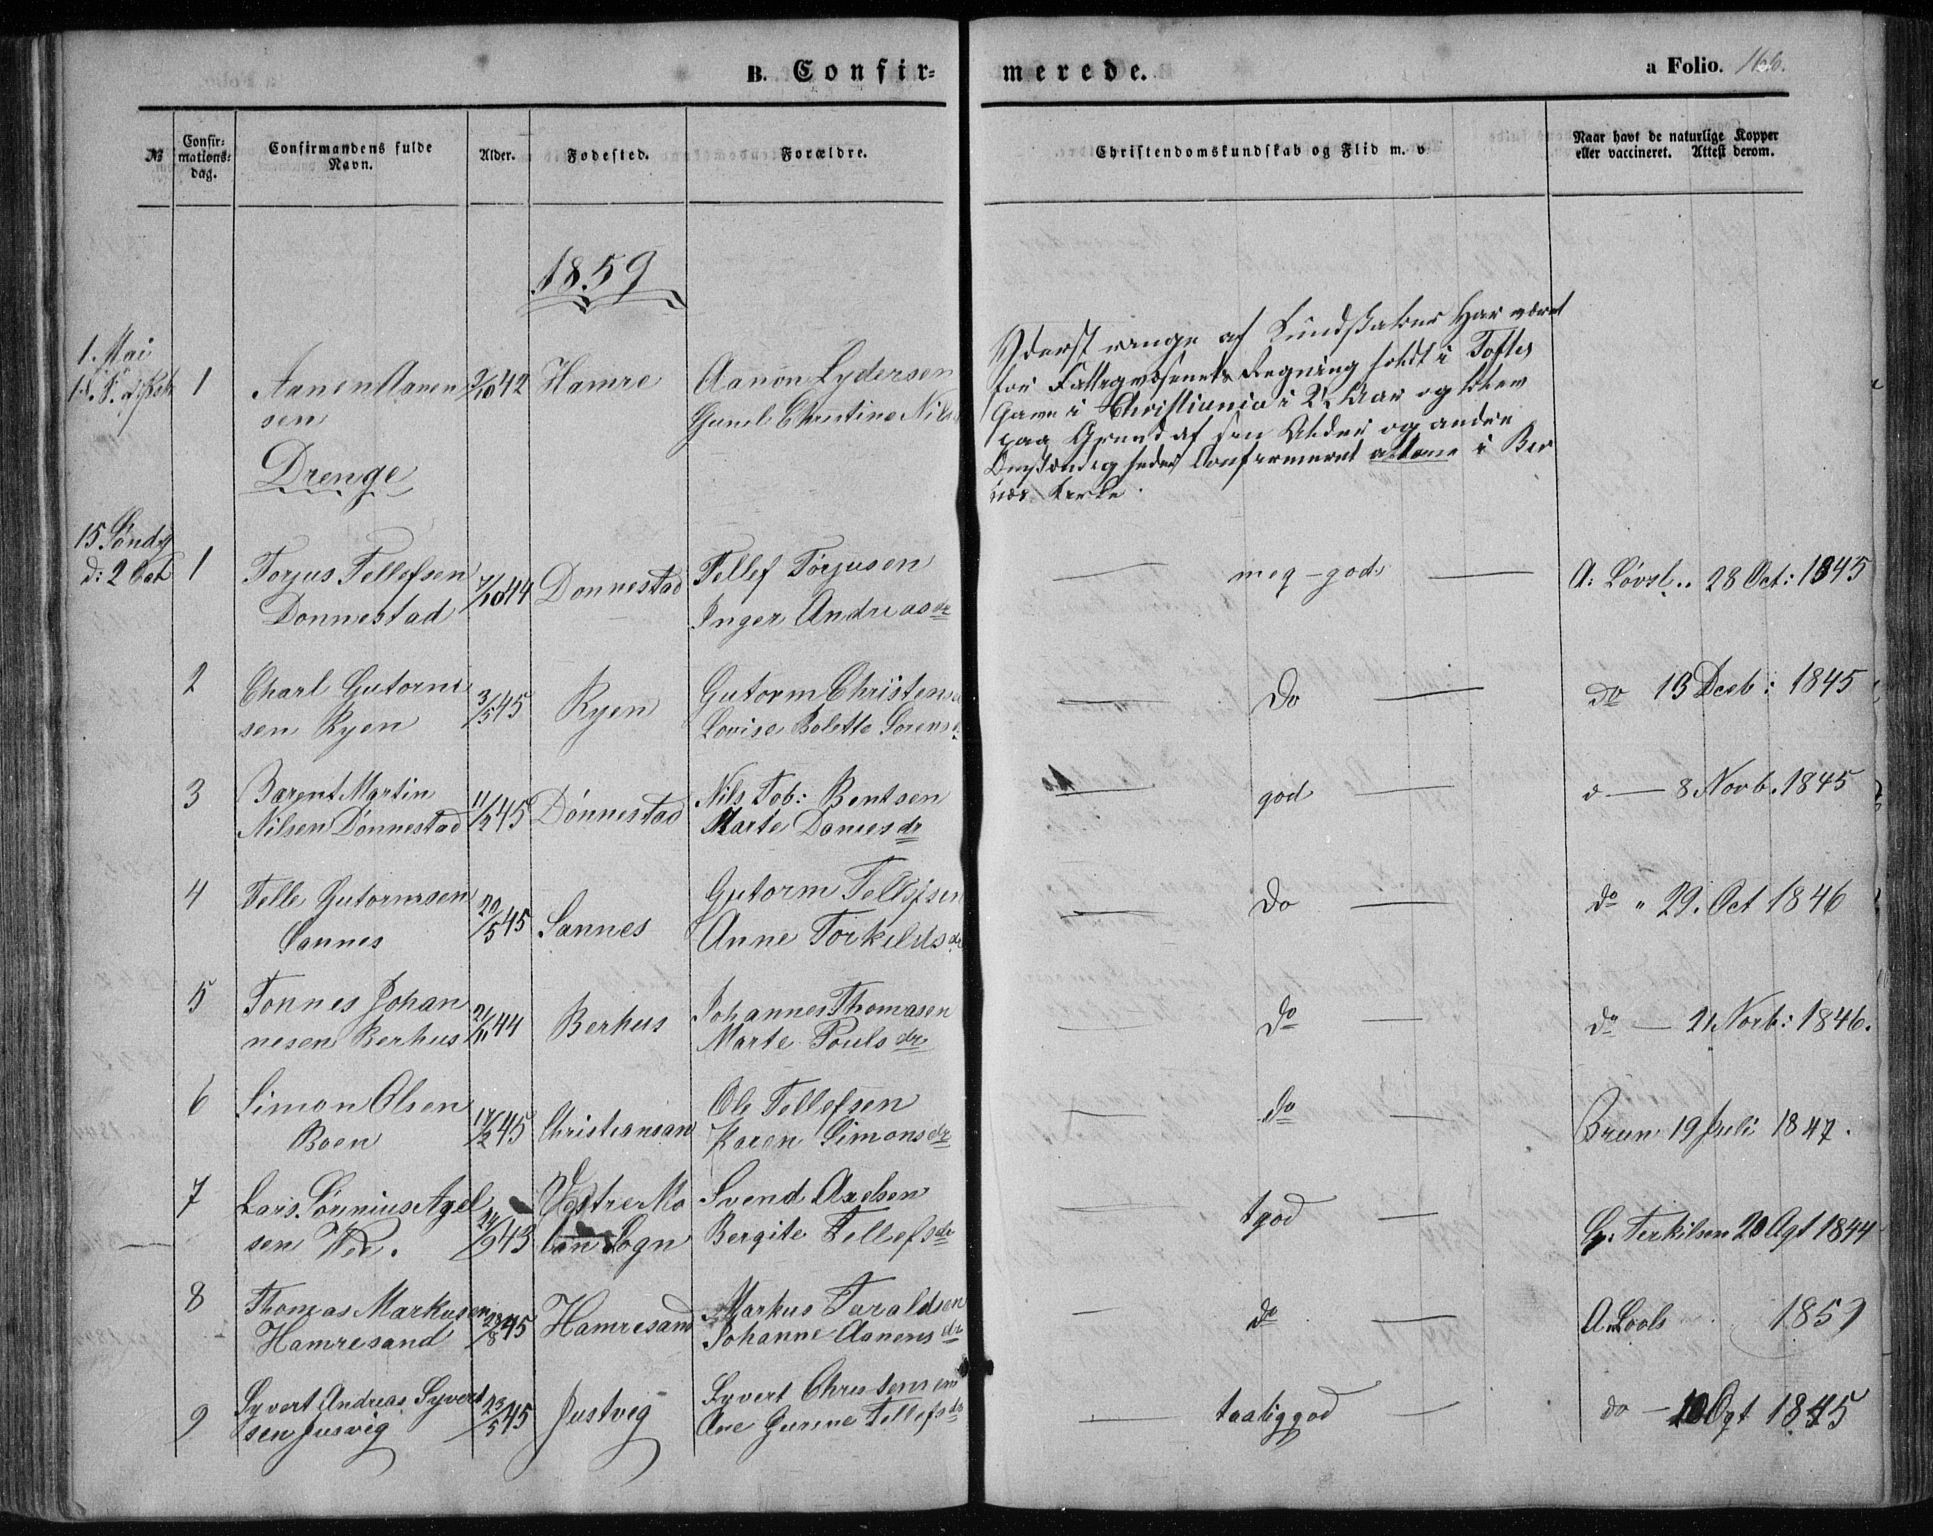 B. Confir-
merede.
a Folio. 166.
№
Confir-
mations-
dag.
Confirmandens fulde
Navn.
Alder.
Fodested.
Forældre.
Christendomskundskab og Flid m. v.
Naar havt de naturlige Kopper
eller vaccineret. Attest derom.
1859
1. Mai
1
Aanen Aanen
sen
9/10 42
Hamre
Aanon Lydersen
Guml. Christine Nils
Yderst ringe af Kundskaber Har været
for Fattigvæsenets Regning holdt i Toftes
Gave i Christiania i 2½ Aar og blev
paa Grund af sin Alder og andre
Omstændigheder Confirmeret allene i
Kirke.
Drenge
15 Søndg
d: 2 Oct
1
Torjus Tellefsen
Donnestad
7/10 44
Donnestad
Tellef Torjusen
Inger Andreasdr
meg-god
A: Løvsl.. 28 Oct: 1845
2
Charl Gutorm
sen Ryen
3/5 45
Ryen
Gutorm Christens
Lovise Bolette Sorens
Do
do 13 Deeb: 1845
3
Barent Martin
Nilsen Dónnestad
11/2 45
Dónnestad
Nils Tob: Bentsen
Marte Daniesdr
god
d — 8 Novb. 1845
4
Telle Gutormsen
Sannes
20/5 45
Sannes
Gutorm Tellefsen
Anne Torkildsdr
Do
do " 29. Oct 1846
5
Tonnes Johan
nesen Berhus
21/11 44
Berhus
Johannes Thomasen
Marte Poulsdr
do
do — 21 Novb: 1846.
6
Simon Olsen
Boen
17/2 45
Christiansan
Ole Tellefsen
Karen Simonsdr
do
Bruun 19 Juli 1847.
7
Lars Sørinius Axel
sen Vee.
24/9 43
Vestre Mo
land Sogn
Svend Axelsen
Bergite Tellefsdr
tgod
G: Terkilsen 20 Agt 1844
8
Thomas Markusen
Hamresand
28/8 45
Hamresand
Markus Taraldsen
Johanne Aanensdr
do
A. Lovls 1859
9
Syvert Andreas Syvert
sen Jusvig
23/5 45
Justvig
Syvert Christensen
Ane Gurine Tellefsdr
taaliggod
do — 10 Agt 1845